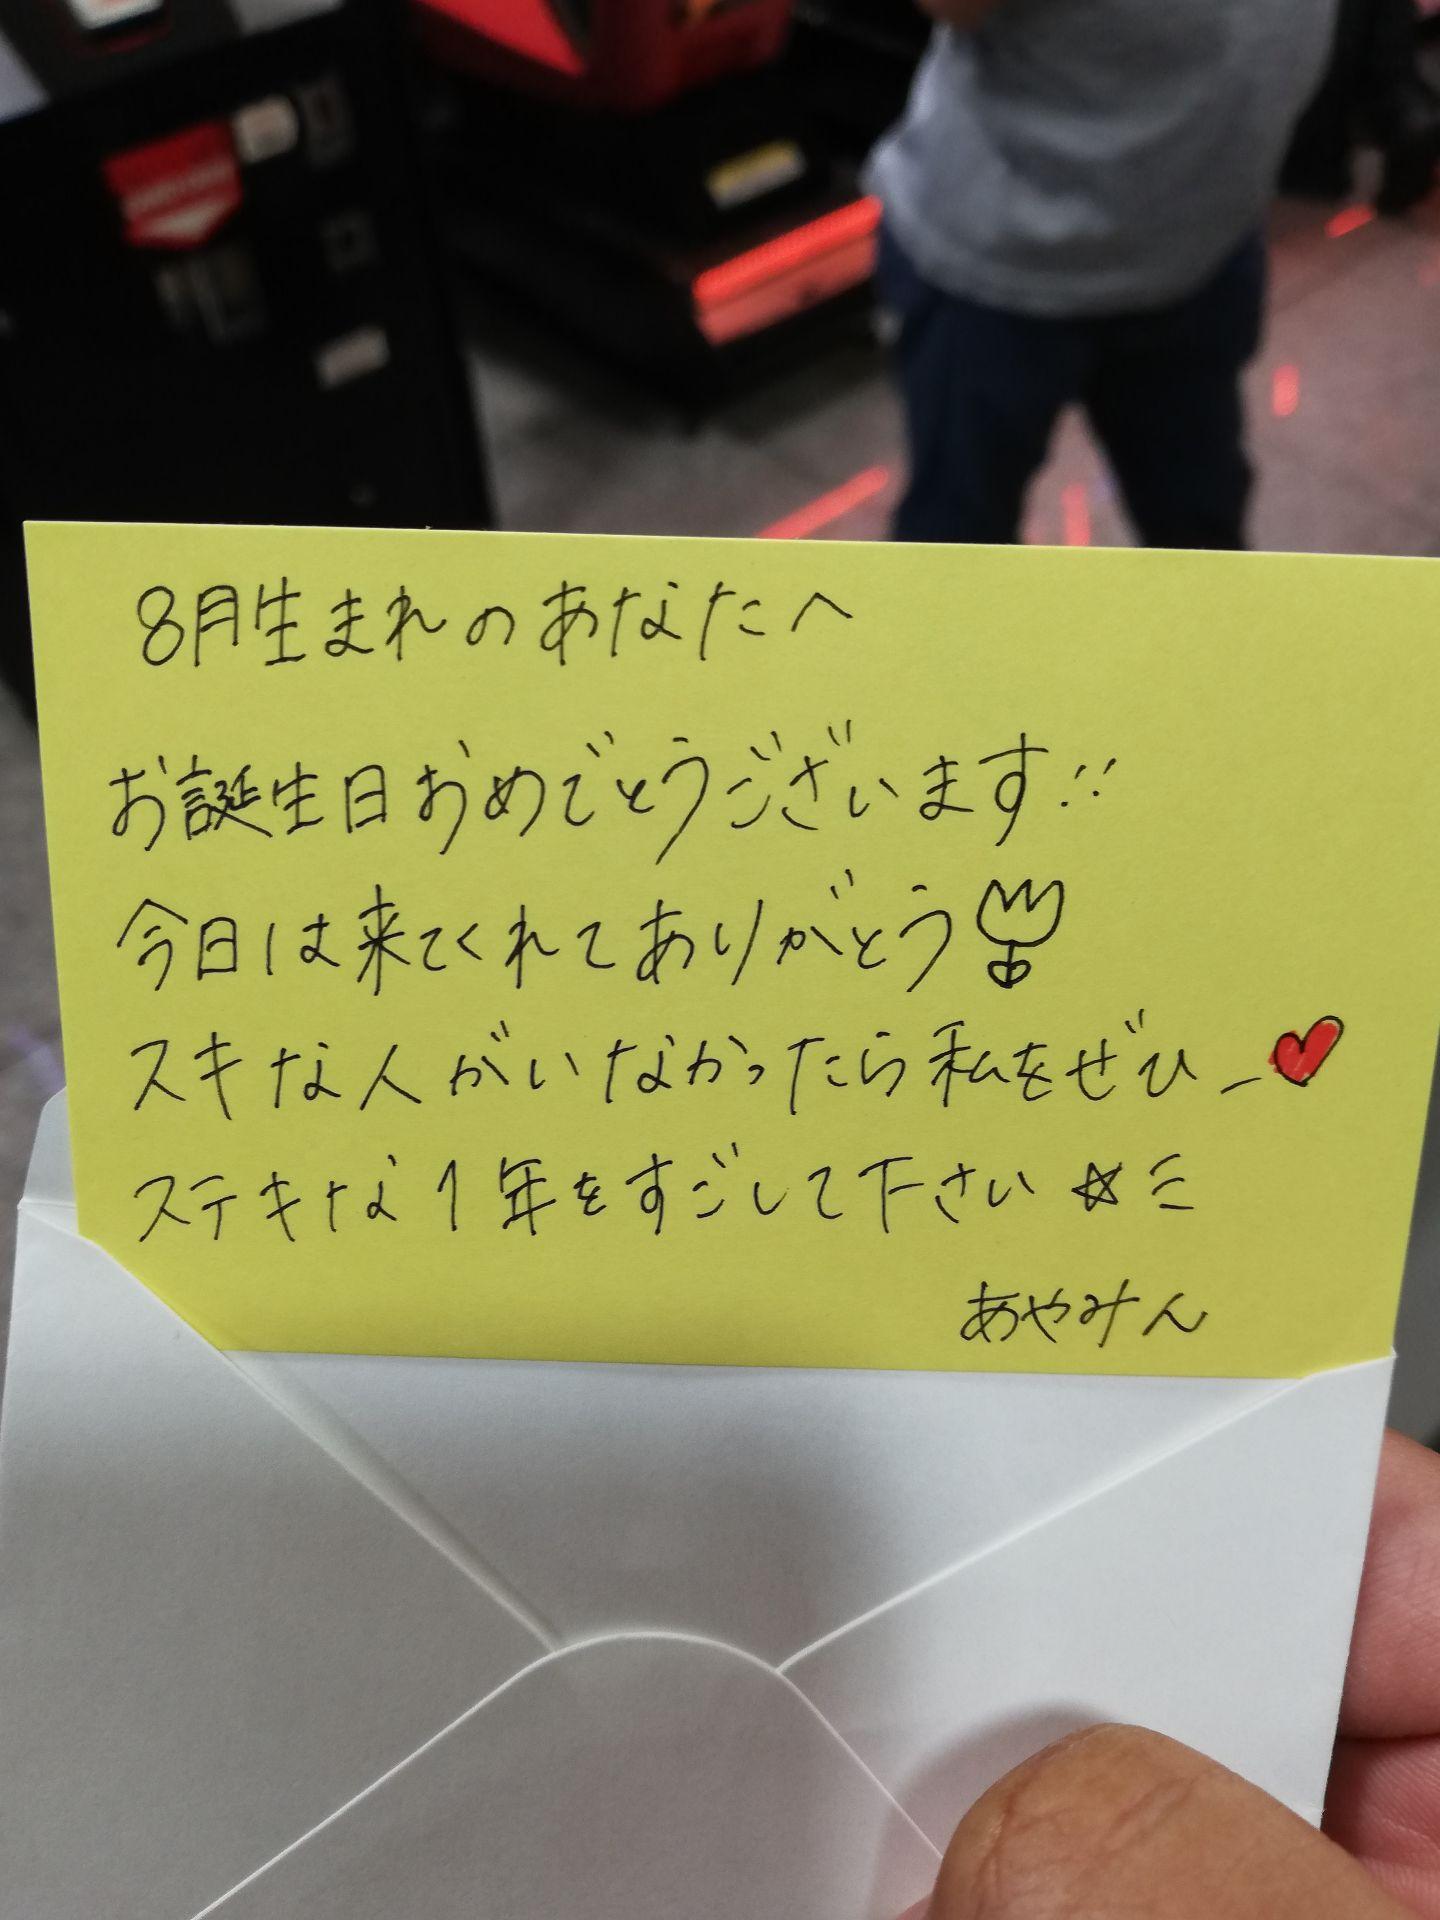 8月生まれのあなたへ
お誕生日おめでとうございます!!
今日は来てくれてありがとう
スキな人がいなかったら私をぜひ_♥
ステキな1年をすごして下さい☆ミ
あやみん